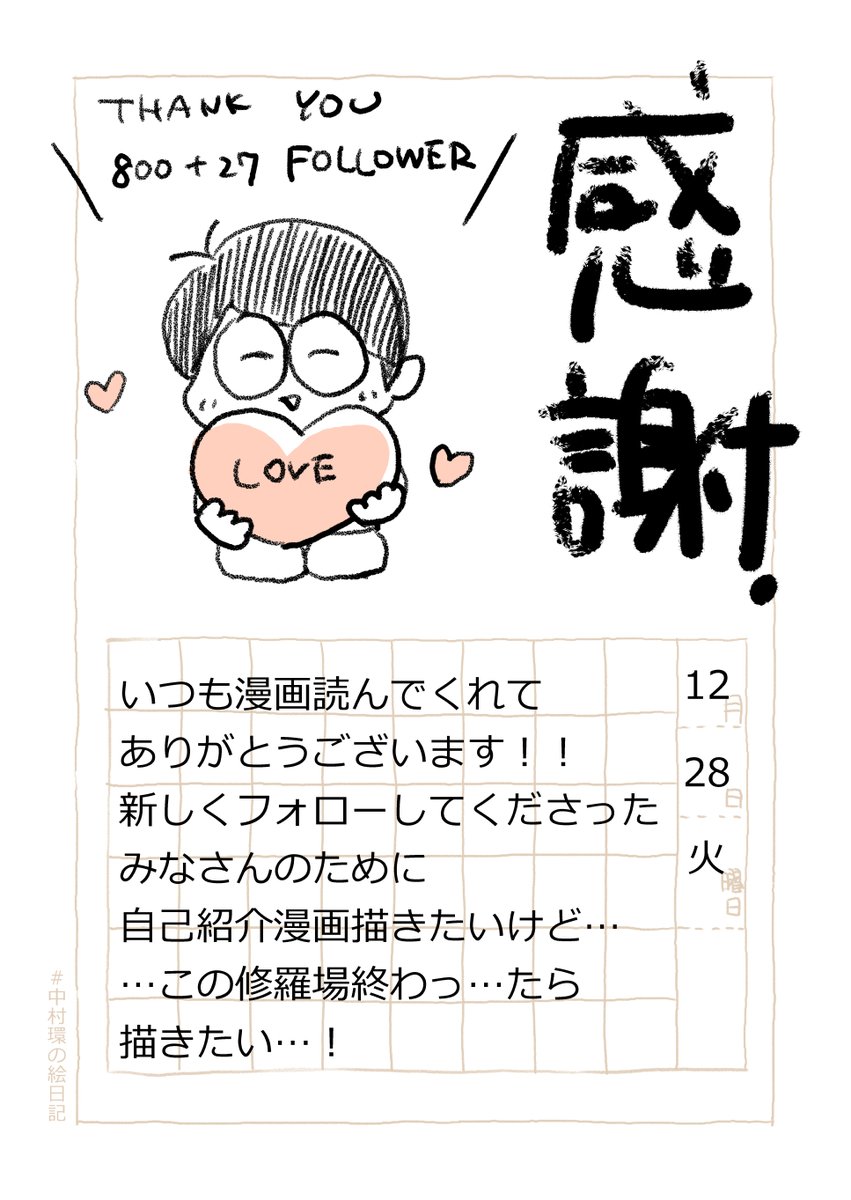 THANK YOU
800+27 FOLLOWER
感謝!
LOVE
いつも漫画読んでくれて
ありがとうございます！！
新しくフォローしてくださった
みなさんのために
自己紹介漫画描きたいけど…
…この修羅場終わっ…たら
描きたい…！
12月
28日
火曜日
#中村環の絵日記